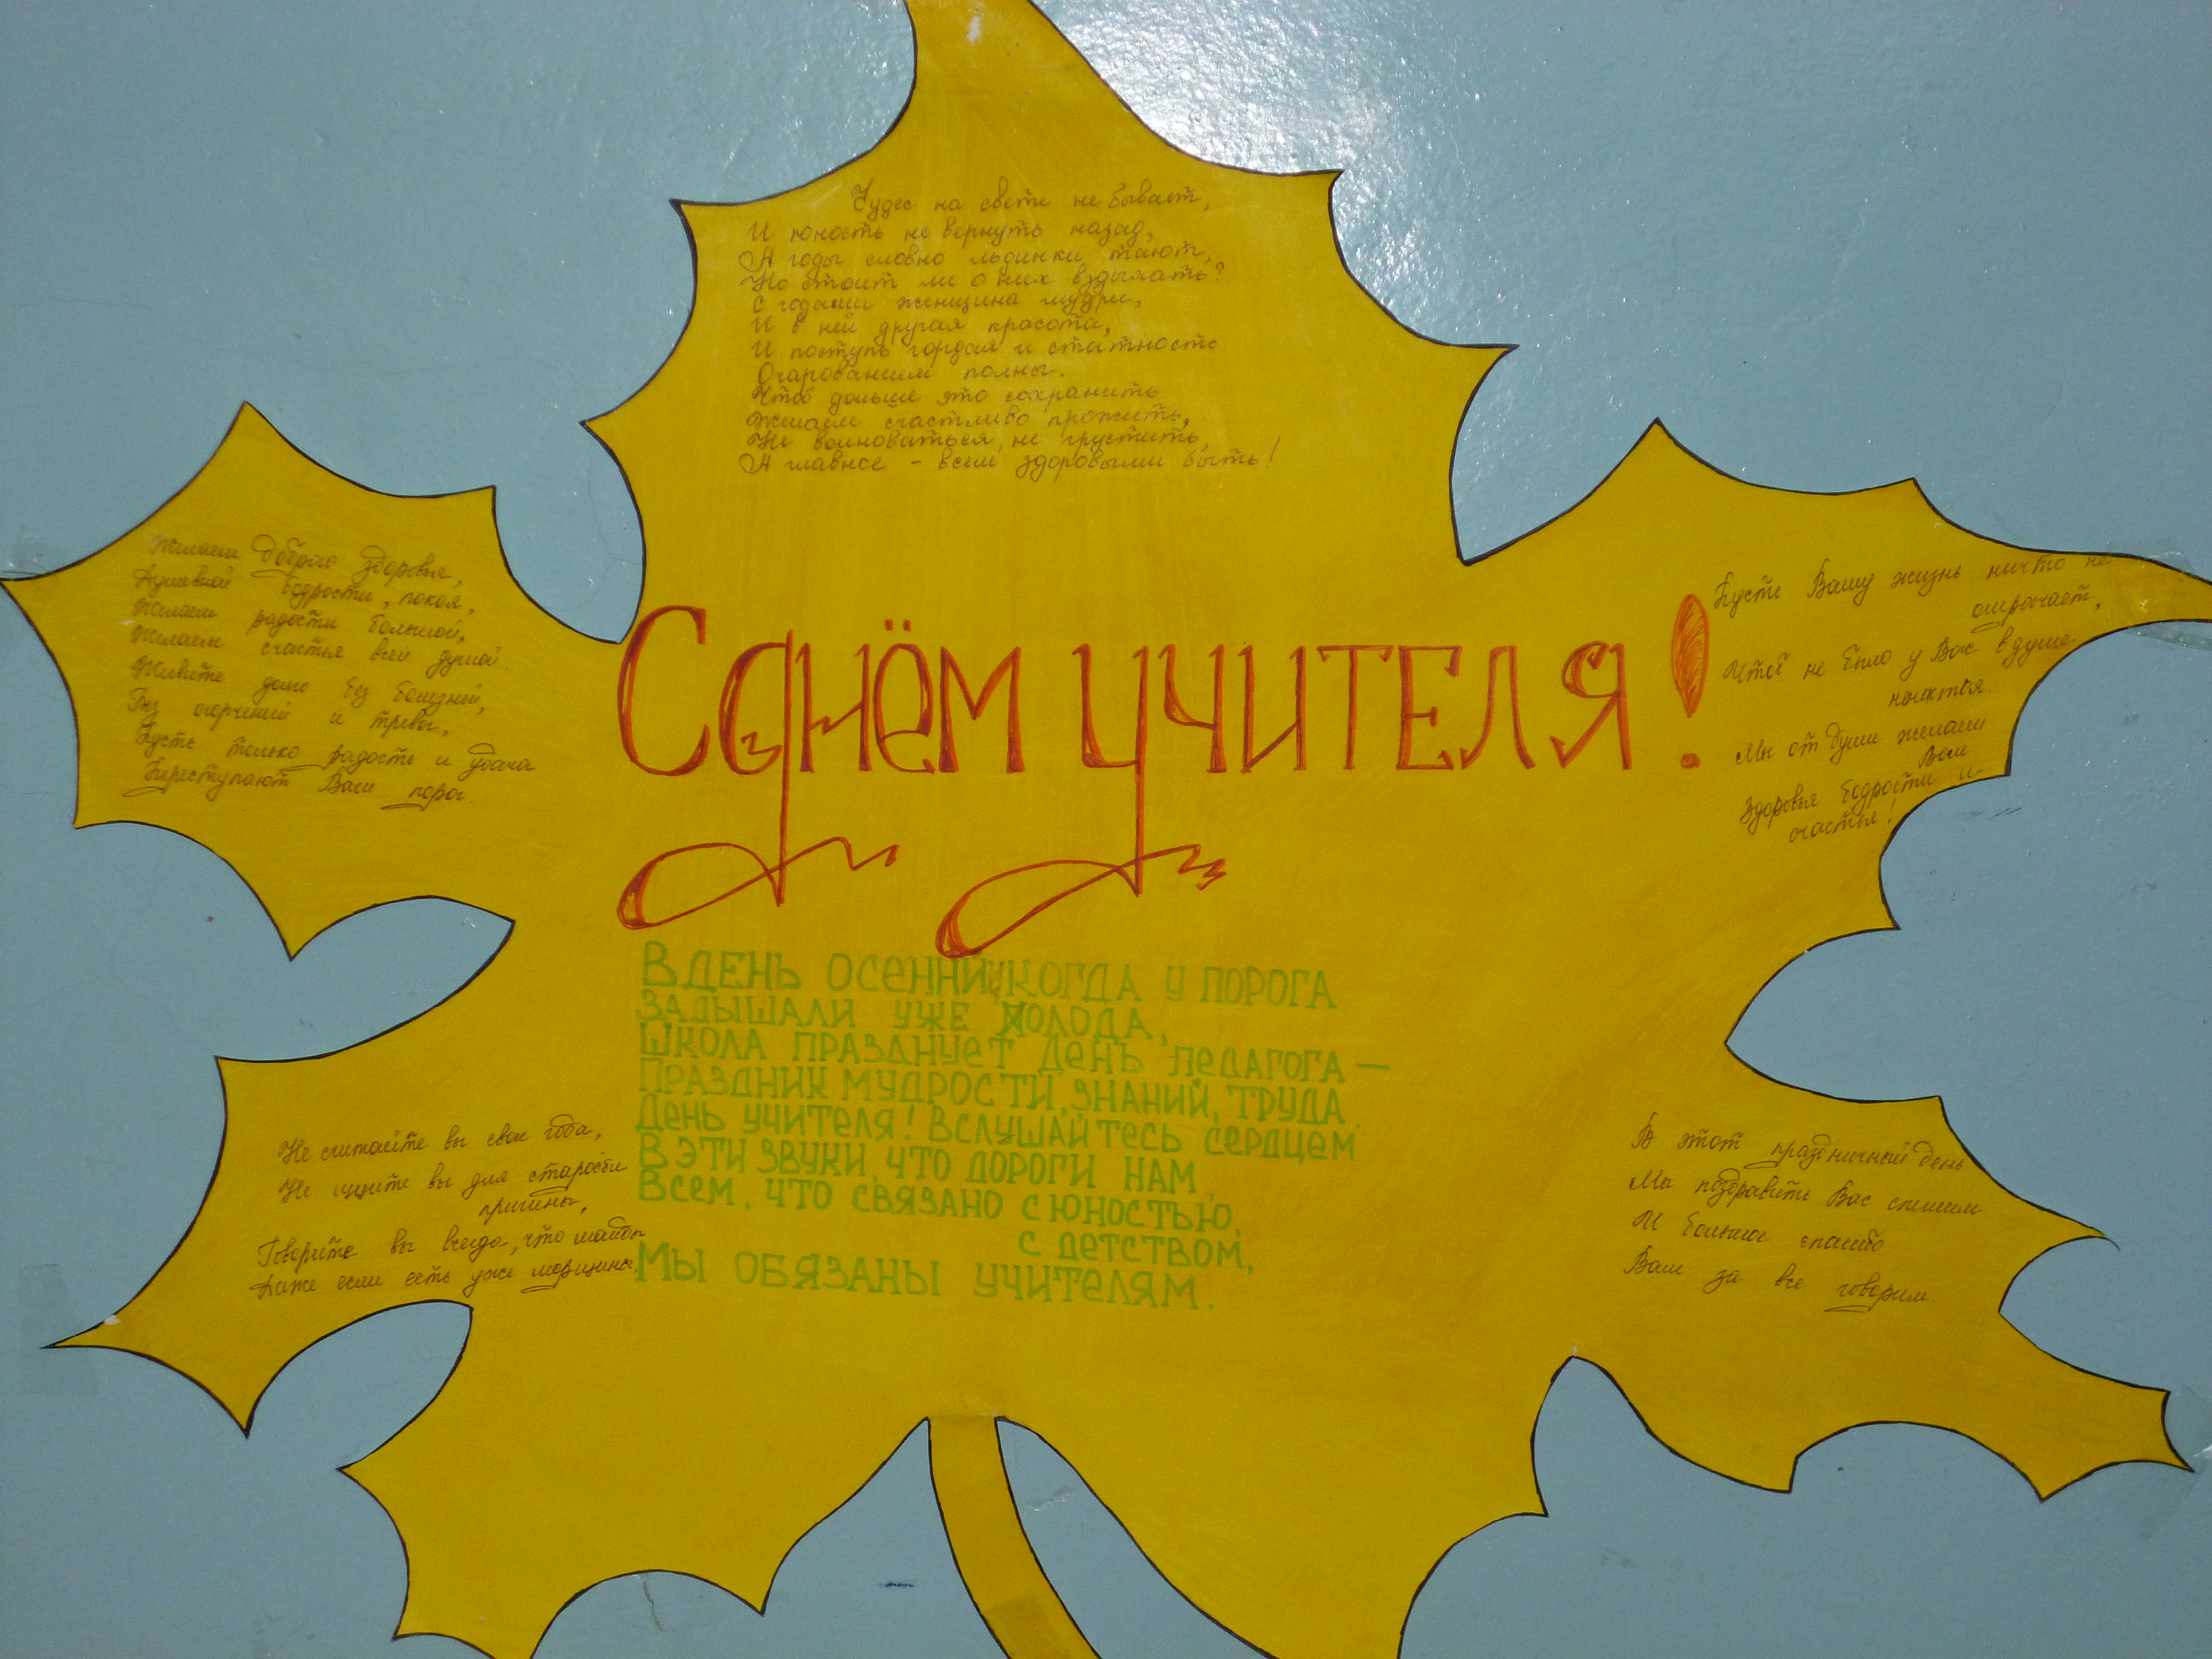 Чудес на свете не бывает,
И юность не вернуть назад,
А годы словно льдинки тают,
Но стоит ли о них вздыхать?
С годами женщина мудрее,
И в ней другая красота,
И поступь гордая и статность
Очарованием полны.
Чтоб дольше это сохранить
Желаем счастливо прожить,
Не волноваться, не грустить,
А главное - всем здоровыми быть!
Желаем доброго здоровья,
Душевной бодрости, покоя,
Желаем радости большой,
Желаем счастья всей душой.
Живите долго без болезней,
Без огорчений и тревог,
Пусть только радость и удача
Переступают Ваш порог.
С днём учителя!
Пусть Вашу жизнь ничто не
омрачает,
Чтоб не было у Вас в душе
ненастья.
Мы от души желаем
Вам
Здоровья бодрости и
счастья!
В ДЕНЬ ОСЕННИЙ, КОГДА У ПОРОГА
ЗАДЫШАЛИ УЖЕ ХОЛОДА,
ШКОЛА ПРАЗДНУЕТ ДЕНЬ ПЕДАГОГА —
ПРАЗДНИК МУДРОСТИ, ЗНАНИЙ, ТРУДА.
ДЕНЬ УЧИТЕЛЯ! ВСЛУШАЙТЕСЬ СЕРДЦЕМ
В ЭТИ ЗВУКИ, ЧТО ДОРОГИ НАМ.
ВСЕМ, ЧТО СВЯЗАНО С ЮНОСТЬЮ,
С ДЕТСТВОМ,
МЫ ОБЯЗАНЫ УЧИТЕЛЯМ.
Не считайте вы свои года,
Не ищите вы для старости
причины,
Говорите вы всегда, что молоды
Даже если есть уже морщины.
В этот праздничный день
Мы поздравить Вас спешим
И большое спасибо
Вам за все говорим.